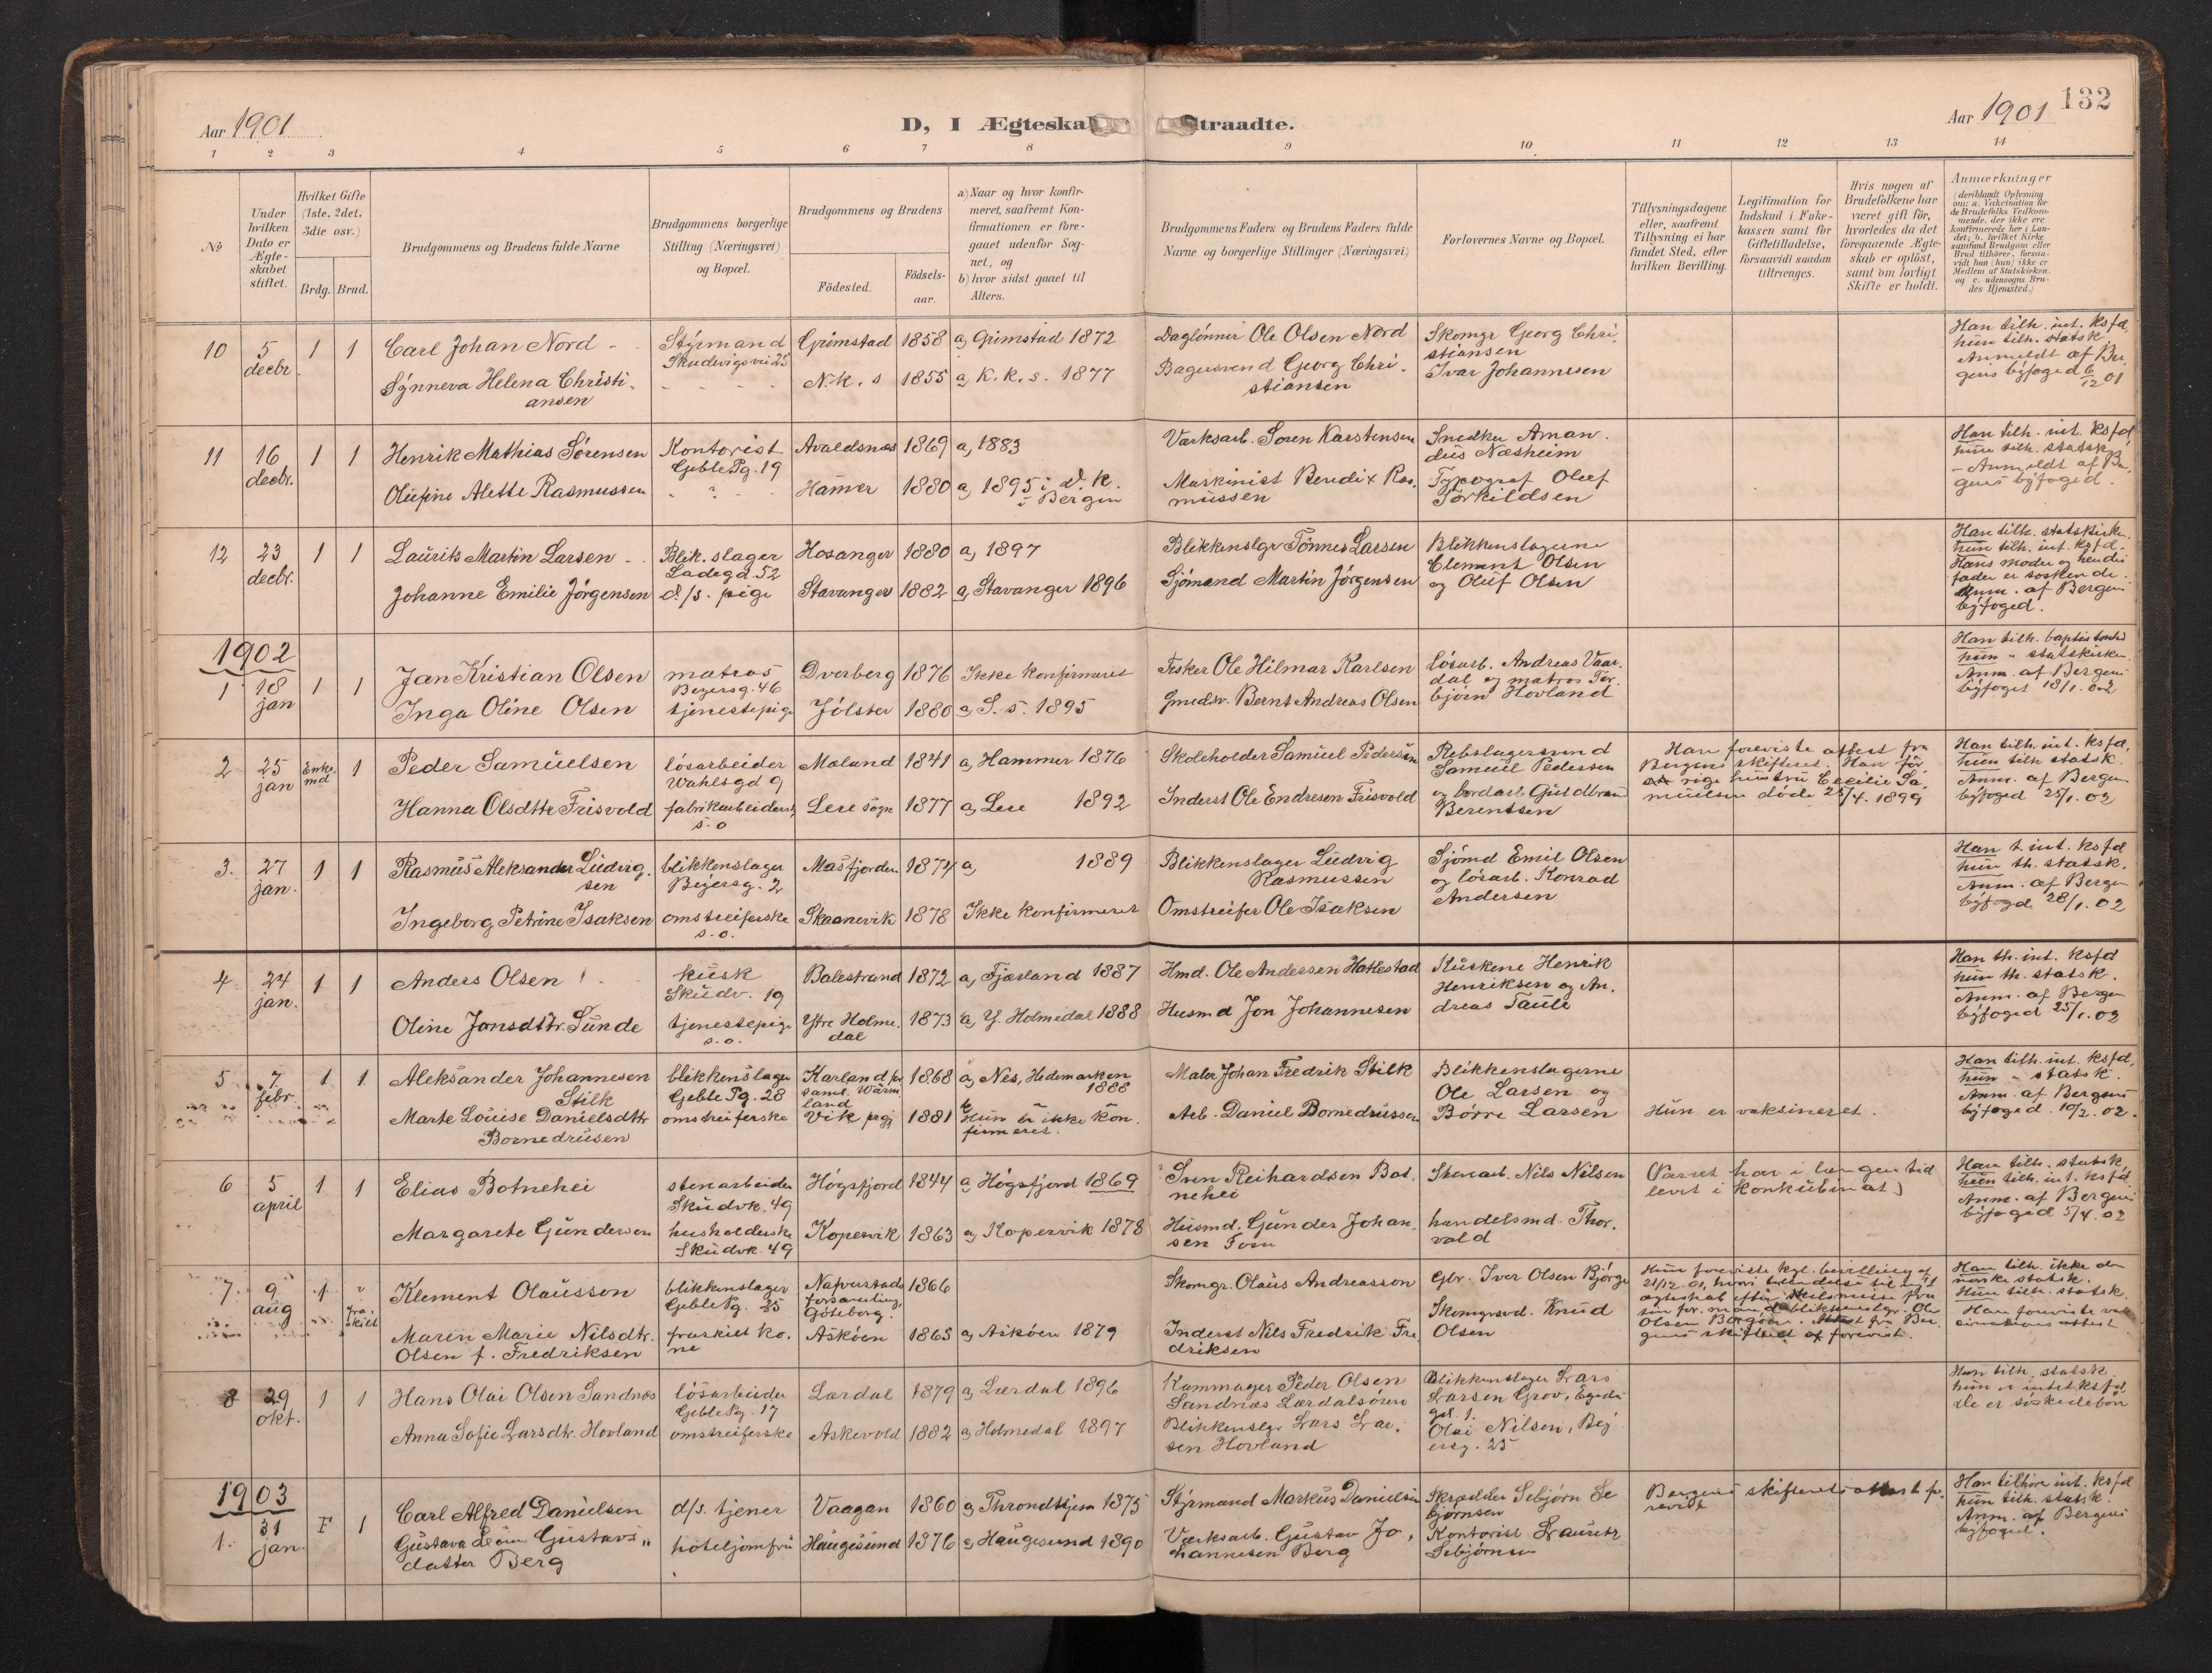 Aar 1901
D, I Ægteska
traadte.
Aar 1901
132
1 2 3 4 5 6 7 8 9 10 11 12 13 14
No
Under hvilken Dato er Ægteskabet stiftet.
Hvilket Gifte (1ste, 2det, 3die osv.)
Brdg. Brud.
Brudgommens og Brudens fulde Navne
Brudgommens borgerlige Stilling (Næringsvei) og Bopæl.
Brudgommens og Brudens
Fødested.
Fødselsaar.
a) Naar og hvor konfirmeret, saafremt Konfirmationen er foregaaet udenfor Sognet, og
b) hvor sidst gaaet til Alters.
Brudgommens Faders og Brudens Faders fulde Navne og borgerlige Stillinger (Næringsvei)
Forlovernes Navne og Bopæl.
Tillysningsdagene eller, saafremt Tillysning ei har fundet Sted, efter hvilken Bevilling.
Legitimation for Indskud i Enkekassen samt for Giftetilladelse, forsaavidt saadan tiltrænges.
Hvis nogen af Brudefolkene har været gift før, hvorledes da det foregaaende Ægteskab er opløst, samt om lovligt Skifte er holdt.
Anmærkninger
(deriblandt Oplysning om: a. Vakcination for de Brudefolks Vedkommende, der ikke ere konfirmerede her i Landet; b. hvilket Kirkesamfund Brudgom eller Brud tilhører, forsaavidt han (hun) ikke er Medlem af Statskirken, og c. udensogns Brudes Hjemsted.)
10 5 decbr 1 1
Carl Johan Nord
Styrmand Skudevigsvei 25
Grimstad 1858 a, Grimstad 1872
Daglønner Ole Olsen Nord
Skomgr Georg Christiansen
Han tilh. int. ksfd
hun tilh. statsk.
Anmeldt af Bergens byfoged 6/12 01
Synneva Helena Christiansen
N.k.s 1855 a, K.k.s. 1877
Bagersvend Georg Christiansen
Ivar Johannesen
11 16 decbr. 1 1
Henrik Mathias Sørensen
Kontorist Geble Pg. 19
Avaldsnæs 1869 a, 1883
Værksarb. Soren Karstensen
Snedker Amandus Næsheim
Han tilh. int. ksfd
hun tilh. statsk
- Anmeldt af Bergens byfoged.
Olufine Alette Rasmussen
Hamer 1880 a, 1895 i d. k. i Bergen
Maskinist Bendix Rasmussen
Typograf Oluf Törkildsen
12 23 decbr. 1 1
Laurits Martin Larsen
Blik.slager Ladegd. 52
Hosanger 1880 a, 1897
Blikkenslgr Tønnes Larsen
Blikkenslagerne Clement Olsen og Oluf Olsen
Han tilh. statskirke
hun tilh. int. ksfd.
Hans moder og hendes fader er søskende.
Anm. af Bergens byfoged.
Johanne Emilie Jørgensen
d./s. pige
Stavanger 1882 a, Stavanger 1896
Sjømand Martin Jørgensen
1902
1 18 jan 1 1
Jan Kristian Olsen
matros Beyersg. 46
Dverberg 1876 Ikke konfirmeret
Fisker Ole Hilmar Karlsen
Løsarb. Andreas Vaardal og matros Torbjørn Hovland
Han tilh. baptistsamf
hun " statskirken
Anm. af Bergens byfoget 18/1. 02
Inga Oline Olsen
tjenestepige
Jølster 1880 a, S. s. 1895
Gmedsv. Bernt Andreas Olsen
2 25 jan Enkemd 1
Peder Samuelsen
løsarbeider Wahlsgd 9
Moland 1841 a, Hammer 1876
Skoleholder Samuel Pedersen
Rebslagersvend Samuel Pedersen og bordarb Guldbrand Berentsen
Han foreviste attest fra Bergens skifteret. Han forrige hustru Cecilie Samuelsen døde 25/4. 1899
Han tilh. int. ksfd,
hun tilh statsk.
Anm. af Bergens byfoged 25/1. 02
Hanna Olsdttr Frisvold
fabrikarbeiderske s.o
Lere sogn 1877 a, Lere 1892
Inderst Ole Endresen Frisvold
3. 27 jan. 1 1
Rasmus Aleksander Ludvigsen
blikkenslager Beyersg. 2
Masfjorden 1874 a, 1889
Blikkenslager Ludvig Rasmussen
Sjømd Emil Olsen og løsarb. Konrad Andersen
Han t. int. ksfd
hun th. statsk.
Anm. af Bergens byfogd 28/1. 02
Ingeborg Petrine Isaksen
omstreiferske s.o.
Skaanevik 1878 Ikke konfirmeret
Omstreifer Ole Isaksen
4 24 jan. 1 1
Anders Olsen
kusk Skudv. 19
Balestrand 1872 a, Fjærland 1887
Hmd. Ole Andersen Hatlestad
Kuskene Henrik Henriksen og Andreas Taule
Han th. int. ksfd
hun th. statsk.
Anm. af Bergen byfoged 25/1. 02
Oline Jonsdttr. Sunde
tjenestepige s.o.
Ytre Holmedal 1873 a, Y. Holmedal 1888
Husmd Jon Johannesen
5 7 febr. 1 1
Aleksander Johannesen Stilk
blikkenslager Geble Pg. 28
Karland pr saml. Wärmland 1868 a, Nes, Hedemarken 1888
Maler Johan Fredrik Stilk
Blikkenslagerne Ole Larsen og Børre Larsen
Hun er vaksineret.
Han tilh. int. ksfd,
hun " statsk.
Anm. af Bergens byfoged. 10/2. 02.
Marte Louise Danielsdttr Bornedrusen
omstreiferske
Vik prgj 1881 Hun er ikke konfirmeret.
Arb. Daniel Bornedrussen
6 5 april 1 1
Elias Botnehei
stenarbeider Skudvk. 49
Høgsfjord 1844 a, Høgsfjord 1869
Sven Reihardsen Botnehei
Stenarb. Nils Nilsen
(Parret har i længere tid levet i konkubinat)
Han tilh. statsk
hun tilh. int. ksfd
Anm. af Bergens byfoged 5/4. 02
Margarete Gundersen
husholderske Skudvk. 49
Kopervik 1863 a, Kopervik 1878
Husmd. Gunder Johansen Fosn
handelsmd. Thorvald
7. 9 aug 1 fraskilt
Klement Olausson
blikkenslager Geble Pg. 25
Nafverstads forsamling, Göteborg. 1866
Skomgr. Olaus Andreasson
Gbr. Iver Olsen Bjørge
Hun foreviste kgl. bevilling af 21/12. 01, hvori tilladelse til nyt ægteskab efter skilsmisse fra sin for. mand blikkenslgr. Ole Olsen Borgøen. Attest fra Bergens skifteret af forevist.
Han tilh. ikke den norske statsk.
Hun tilh. statsk.
Han foreviste vaccinationsattest
Maren Marie Nilsdtr. Olsen f. Fredriksen
fraskilt kone
Askøen 1865 a, Askøen 1879
Inderst Nils Fredrik Fredriksen
Skomgrsvd. Knud Olsen
8 29 okt. 1 1
Hans Olai Olsen Sandnæs
løsarbeider Geble Pg. 17
Lærdal 1879 a, Lærdal 1896
Kammager Peder Olsen Sandnæs Lærdalsøren
Blikkenslager Lars Larsen Grov, Egedisgd. 1.
Han tilh. statsk.
hun er intet ksfd
De er søskedebørn
Anna Sofie Larsdtr. Hovland
omstreiferske
Askevold 1882 a, Holmedal 1897
Blikkenslgr Lars Larsen Hovland
Olai Nilsen, Beyersg. 25
1903
1. 31 jan. F 1
Carl Alfred Danielsen
d/s. tjener
Vaagan 1860 a, Throndhjem 1875
Styrmand Markus Danielsen
Skrædder Sebjørn Sebjørnsen
Bergens skifterets attest forevist
Han tilhøre int. ksfd
hun tilh. statsk.
Anm. af Bergens byfoged.
Gustava Gustavsdatter Berg
hoteljomfru
Haugesund 1876 a, Haugesund 1890
Værksarb. Gustav Johannesen Berg
Kontorist Lauritz Sebjørnsen